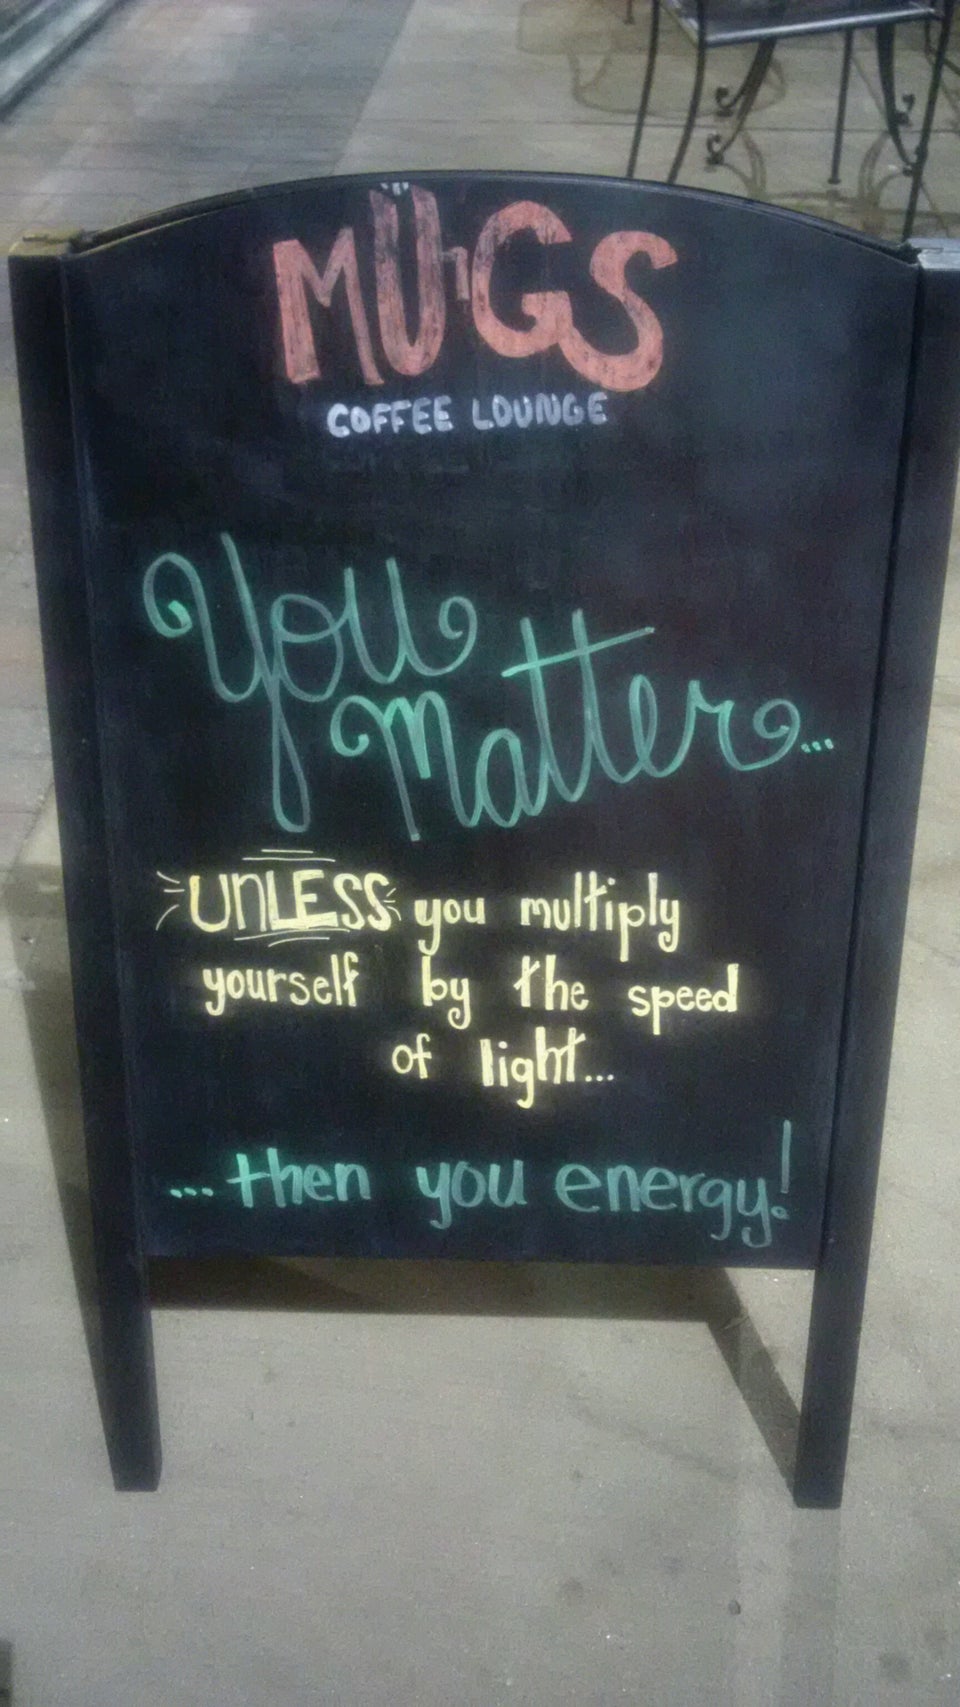 MUGS
COFFEE LOUNGE
You
Matter...
UNLESS you multiply
yourself by the speed
of light...
...then you energy!